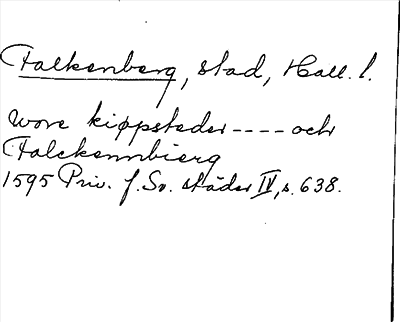 Falkenberg, stad, Hall. l.
wore kiøpsteder ---- och
Falckennbierg
1595 Priv. f. Sv. städer IV, s. 638.